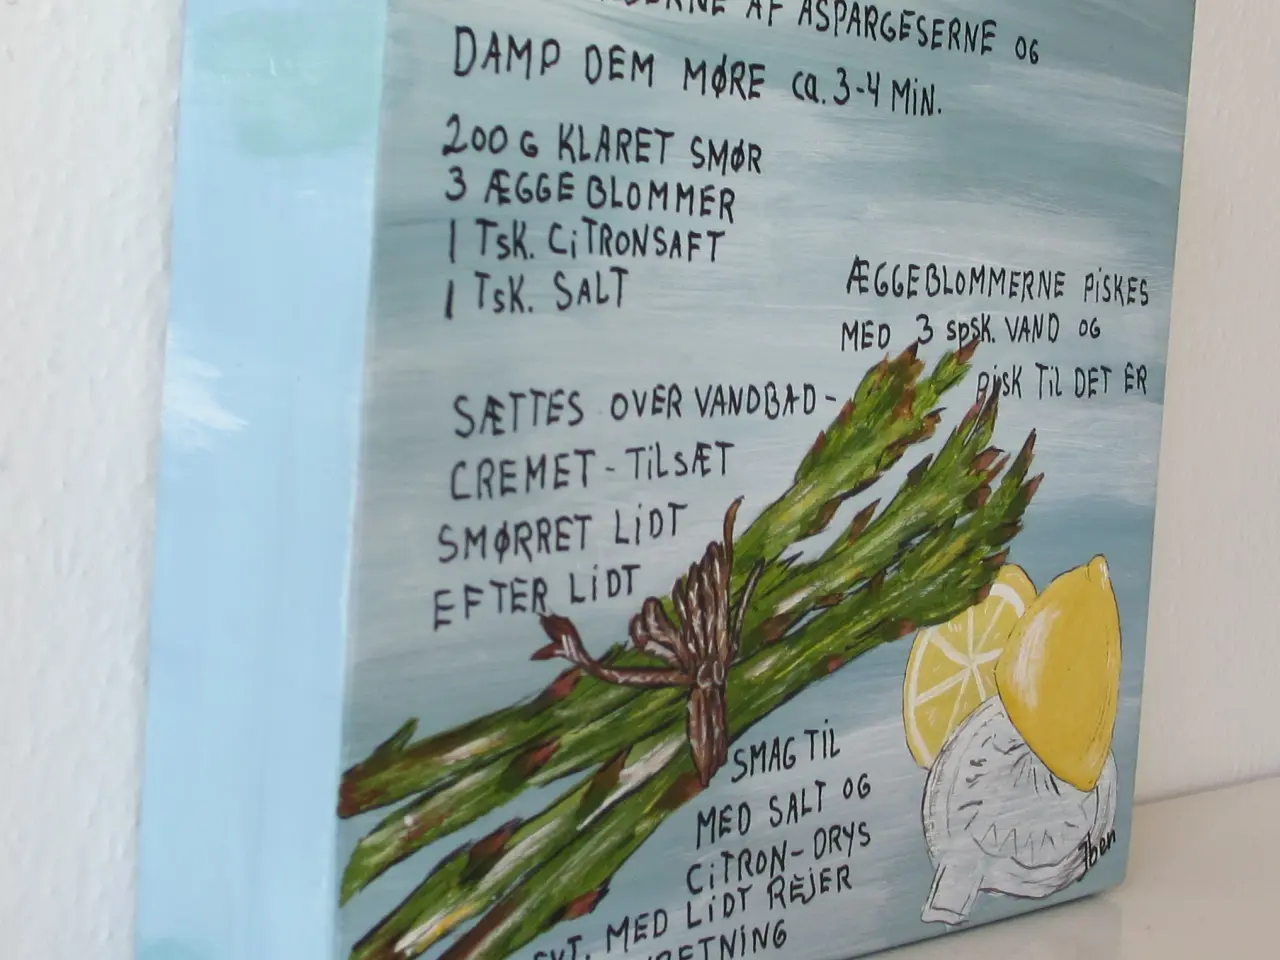 AF ASPARGESERNE OG
DAMP DEM MØRE ca. 3-4 MIN.
200 G KLARET SMØR
3 ÆGGEBLOMMER
1 TSK. CITRONSAFT
1 TSK. SALT
ÆGGEBLOMMERNE PISKES
MED 3 spsk. VAND OG
PISK TIL DET ER
SÆTTES OVER VANDBAD-
CREMET-TILSÆT
SMØRRET LIDT
EFTER LIDT
SMAG TIL
MED SALT OG
CITRON-DRYS
EVT. MED LIDT REJER
Iben